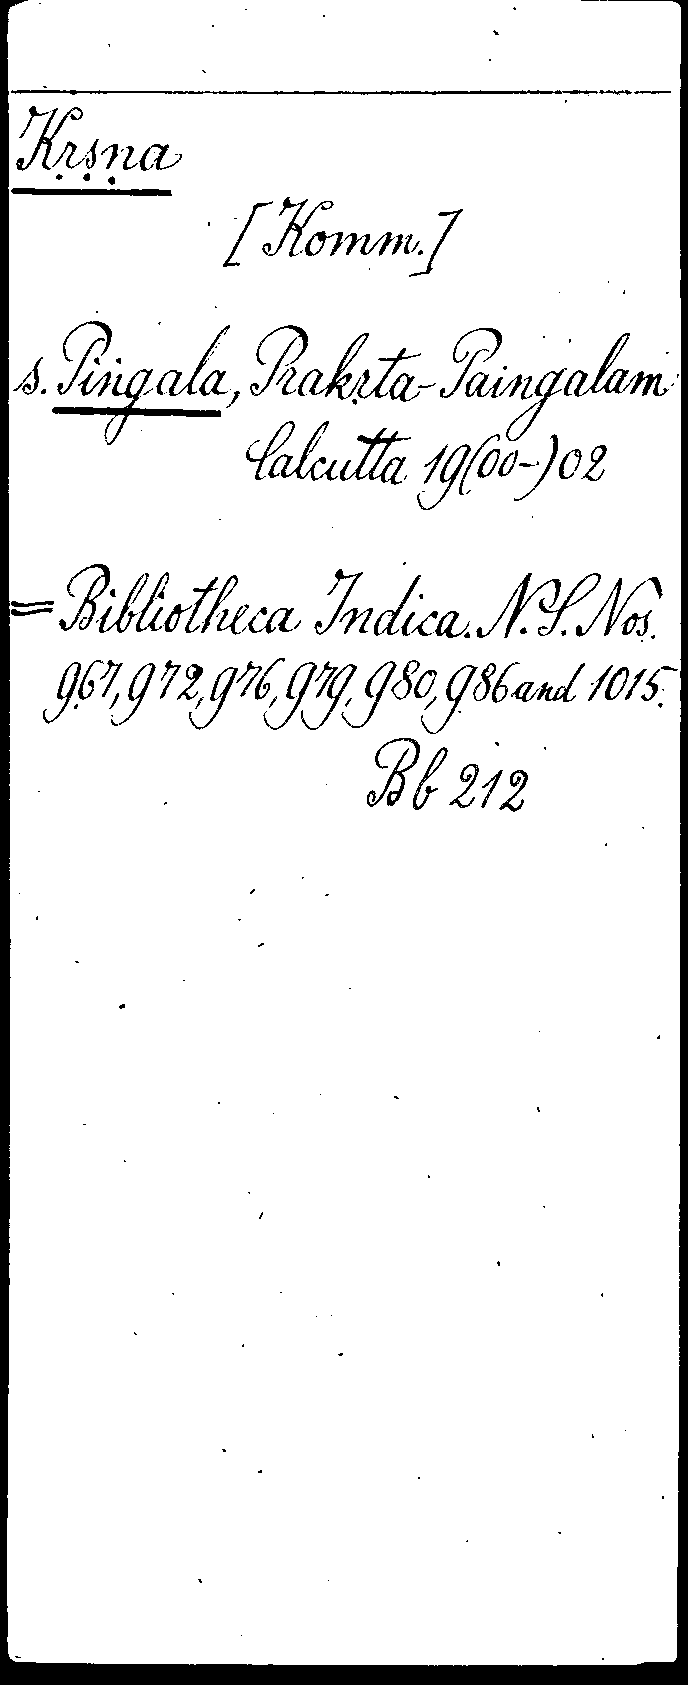 Kṛṣṇa
[Komm.]
s. Piṅgala, Prakṛta-Paingalam
Calcutta 19(00-)02
= Bibliotheca Indica. N.S. Nos.
967, 972, 976, 979, 980, 986 and 1015.
Bb 212